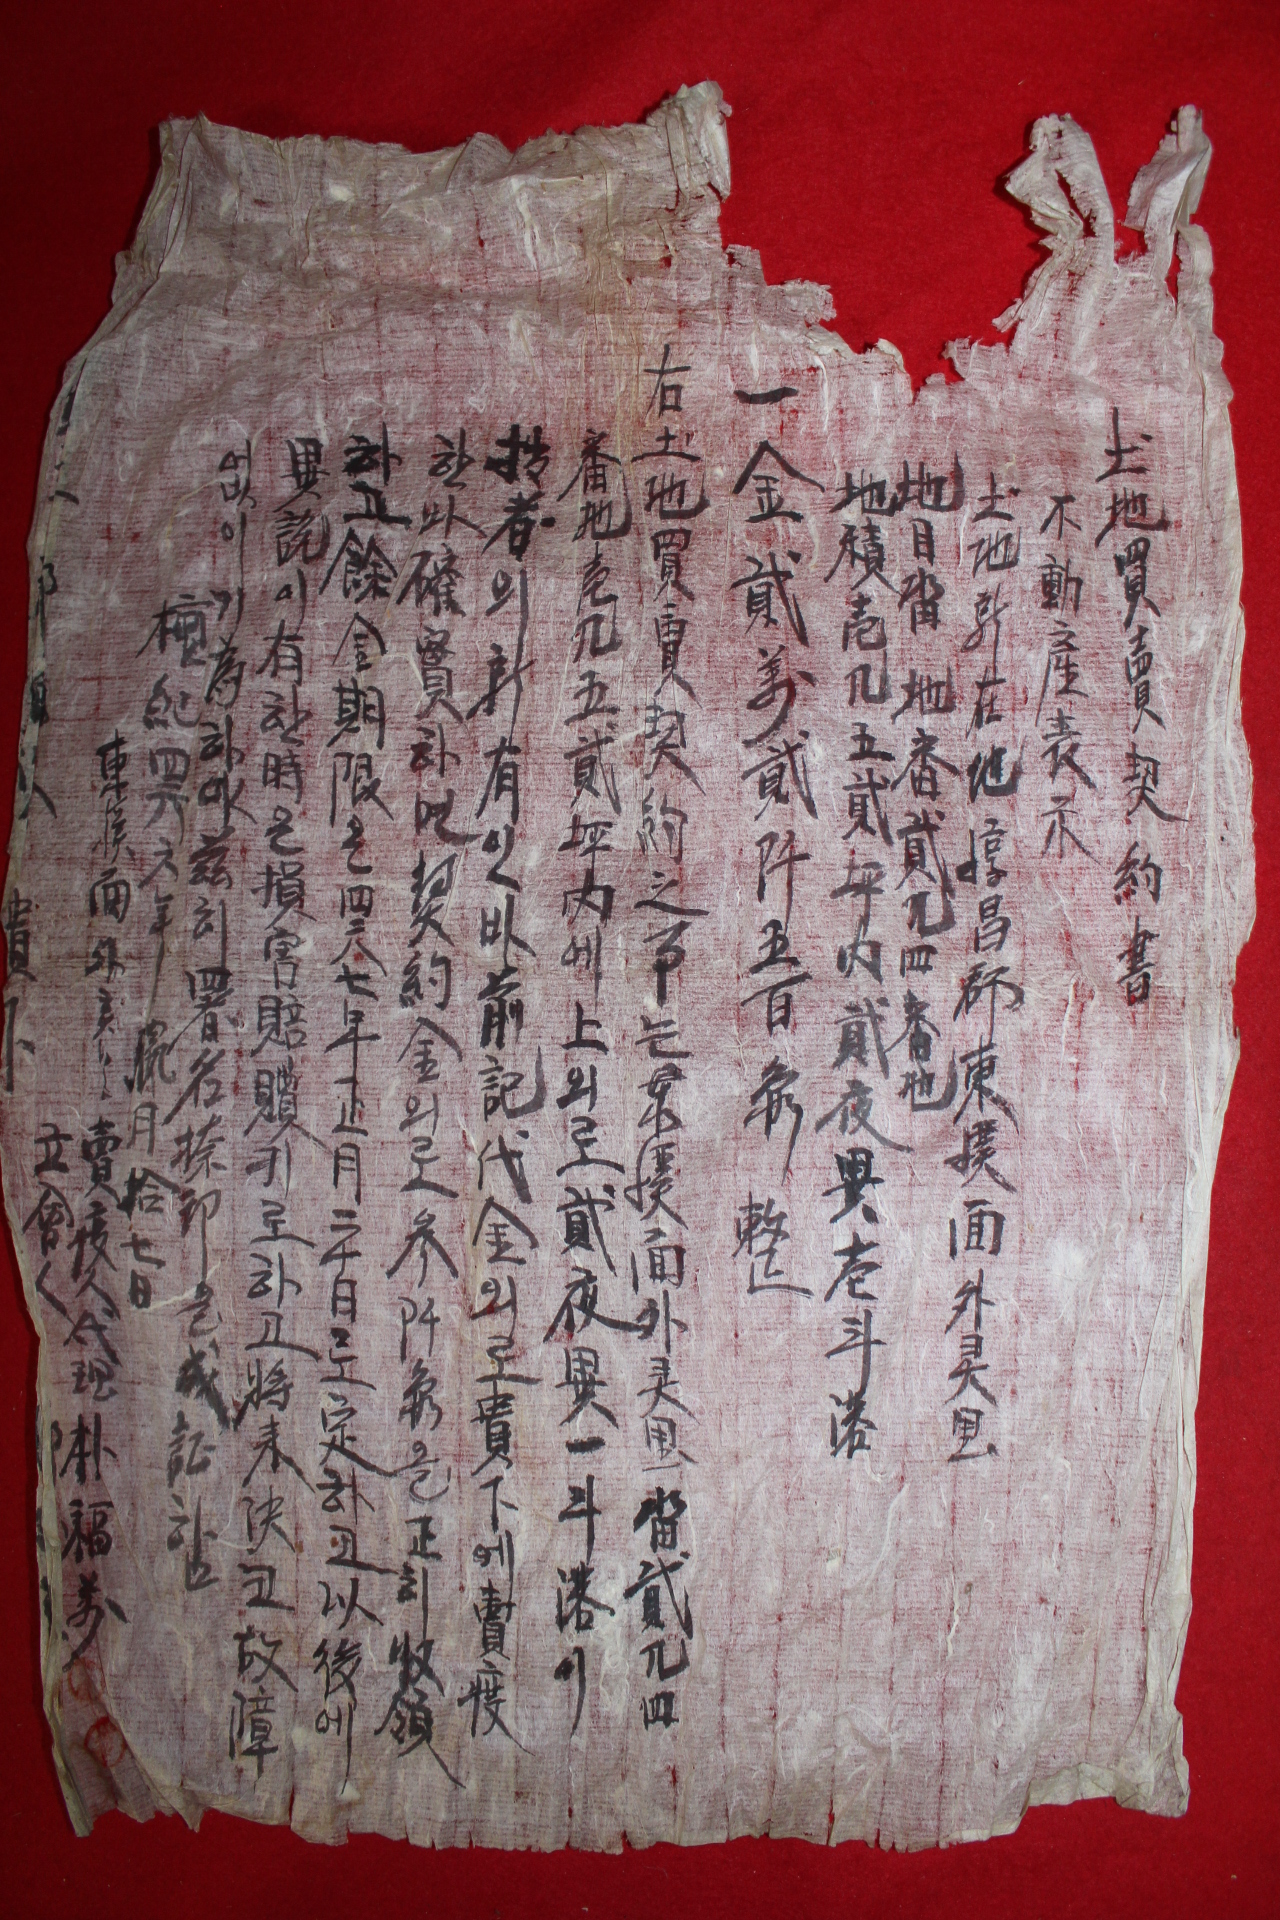 土地買賣契約書
不動産表示
土地所在地 淳昌郡 東溪面 外灵里
地目畓 地番 貳九四番地
地積 壱九五貳坪內 貳夜畀 壱斗落
一金 貳萬貳阡五百 整
右土地買賣契約之事는 東溪面 外灵里 畓 貳九四
番地 壱九五貳坪內에 上의로 貳夜畀 一斗落이
拙者의 所有인바 前記代金의로 貴下에 賣渡
한바 確實하며 契約金의로 參阡 을 正히 收領
하고 餘金期限은 四二八七年 正月 二十日로 定하고 以後에
異說이 有한 時은 損害賠贖키로 하고 將來決코 故障
업이기 爲하야 玆히 署名捺印을 成証함
檀紀四二八六年 臘月 拾七日
東溪面 外灵
賣渡人代理 朴福萬
立會人
貴下